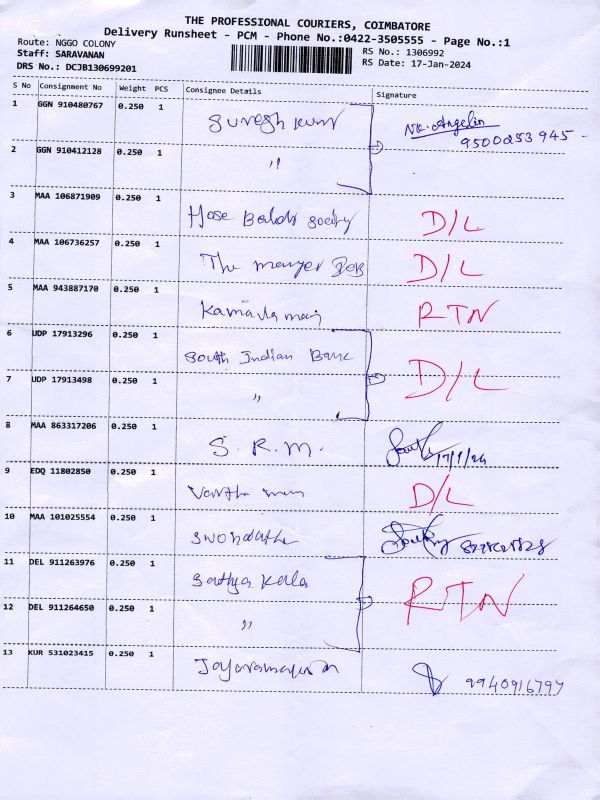 THE PROFESSIONAL COURIERS, COIMBATORE
Delivery Runsheet - PCM - Phone No.:0422-3505555 - Page No.:1
Route: NGGO COLONY RS No.: 1306992
Staff: SARAVANAN RS Date: 17-Jan-2024
DRS No.: DCJB130699201
S No Consignment No Weight PCS Consignee Details Signature
1 GGN 910480767 0.250 1 Suresh Kumar NK. Angelin
9500253945
2 GGN 910412128 0.250 1 "
3 MAA 106871909 0.250 1 D/L
4 MAA 106736257 0.250 1 The D/L
5 MAA 943887170 0.250 1 RTN
6 UDP 17913296 0.250 1 South Indian Bank D/L
7 UDP 17913498 0.250 1 "
8 MAA 863317206 0.250 1 S. R. M. 17/1/24
9 EDQ 11802850 0.250 1 D/L
10 MAA 101025554 0.250 1
11 DEL 911263976 0.250 1 Sathya Kala RTN
12 DEL 911264650 0.250 1 "
13 KUR 531023415 0.250 1 9940916797